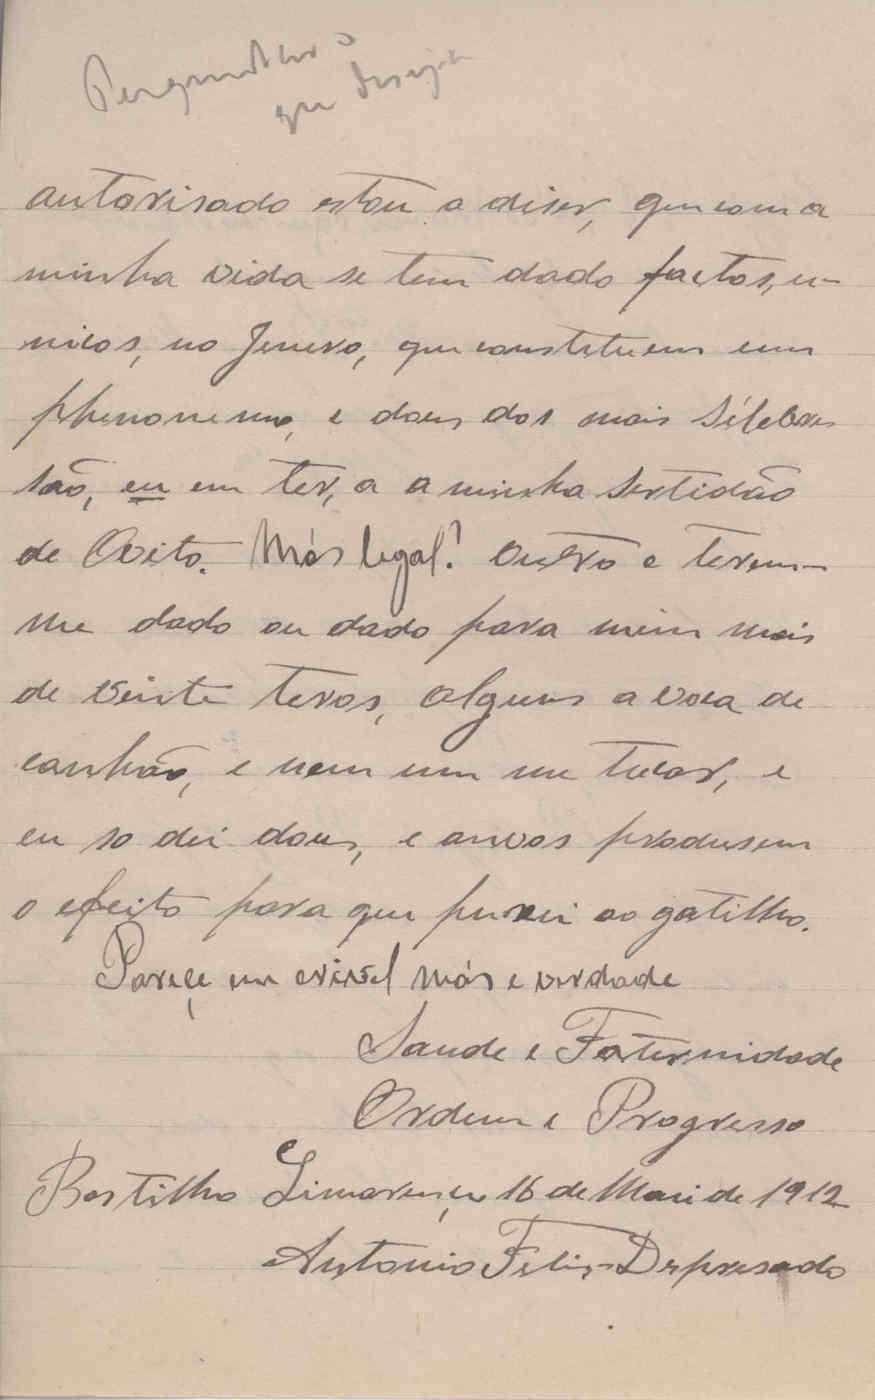 Perguntar o
que deseja
autorisado estou a diser, que com a
minha vida se tem dado factos, u-
nicos, no Jenero, que constituem um
phenonemno, e dous dos mais Sélebres
são, eu em ter, a a minha Sertidão
de Ovito. Más legal! Outro e terem-
me dado ou dado para mim mais
de veinte teros, alguns a voca de
canhão, e nem um me tucar, e
eu so dei dous, e anvos produsem
o efeito para que puxei ao gatilho.
Pareçe um crivel más e verdade
Saude e Faternidade
Ordem e Progresso
Bostilho Limarense 16 de Mai de 1912
Antonio Felix Depresado